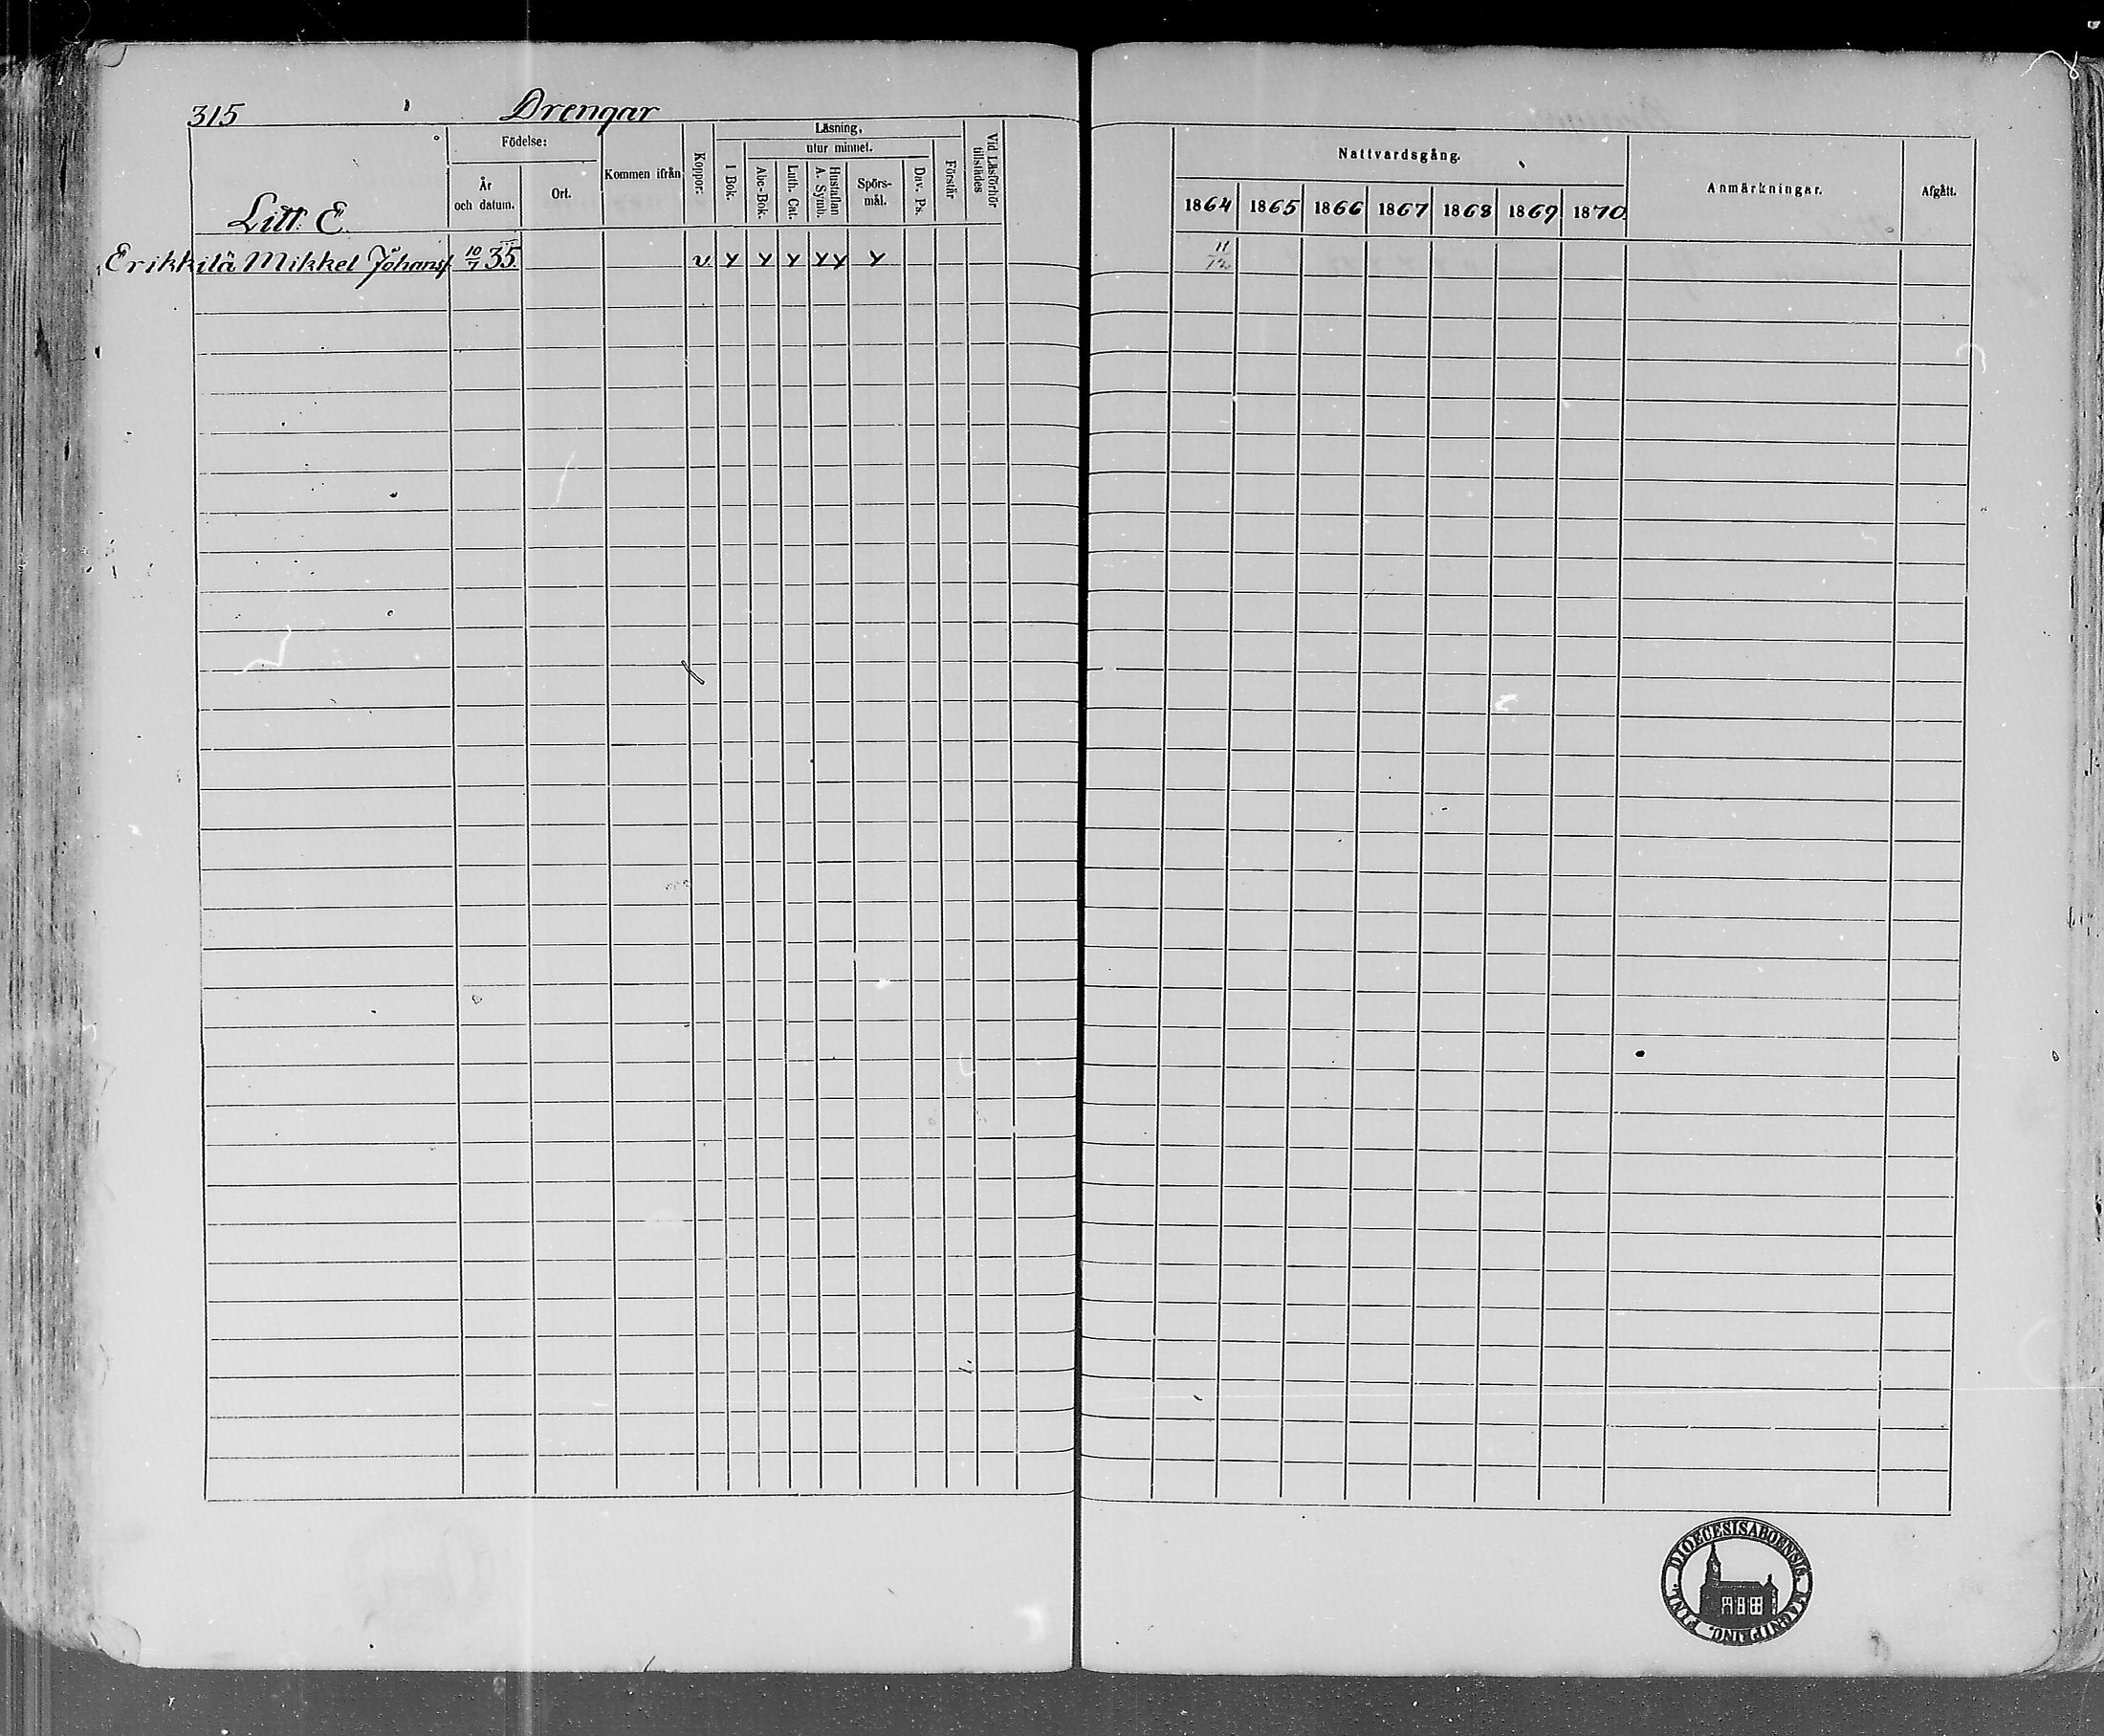 315 Drengar
Litt. E.
Födelse:
År och datum.
Ort.
Kommen ifrån
Koppor.
Läsning,
I Bok.
utur minnet.
Abc-Bok.
Luth. Cat.
Hustaflan A. Symb.
Spörs-mål.
Dav. Ps.
Förstår
Vid Läsförhör tillstädes
Nattvardsgång.
1864 1865 1866 1867 1868 1869 1870
Anmärkningar.
Afgått.
Erikkilä Mikkel Johansf. 10/7 35. v. Y Y Y Y Y Y 11/12
DIOECESIS ABOENSIS. MAGNI PRINC. FINL.